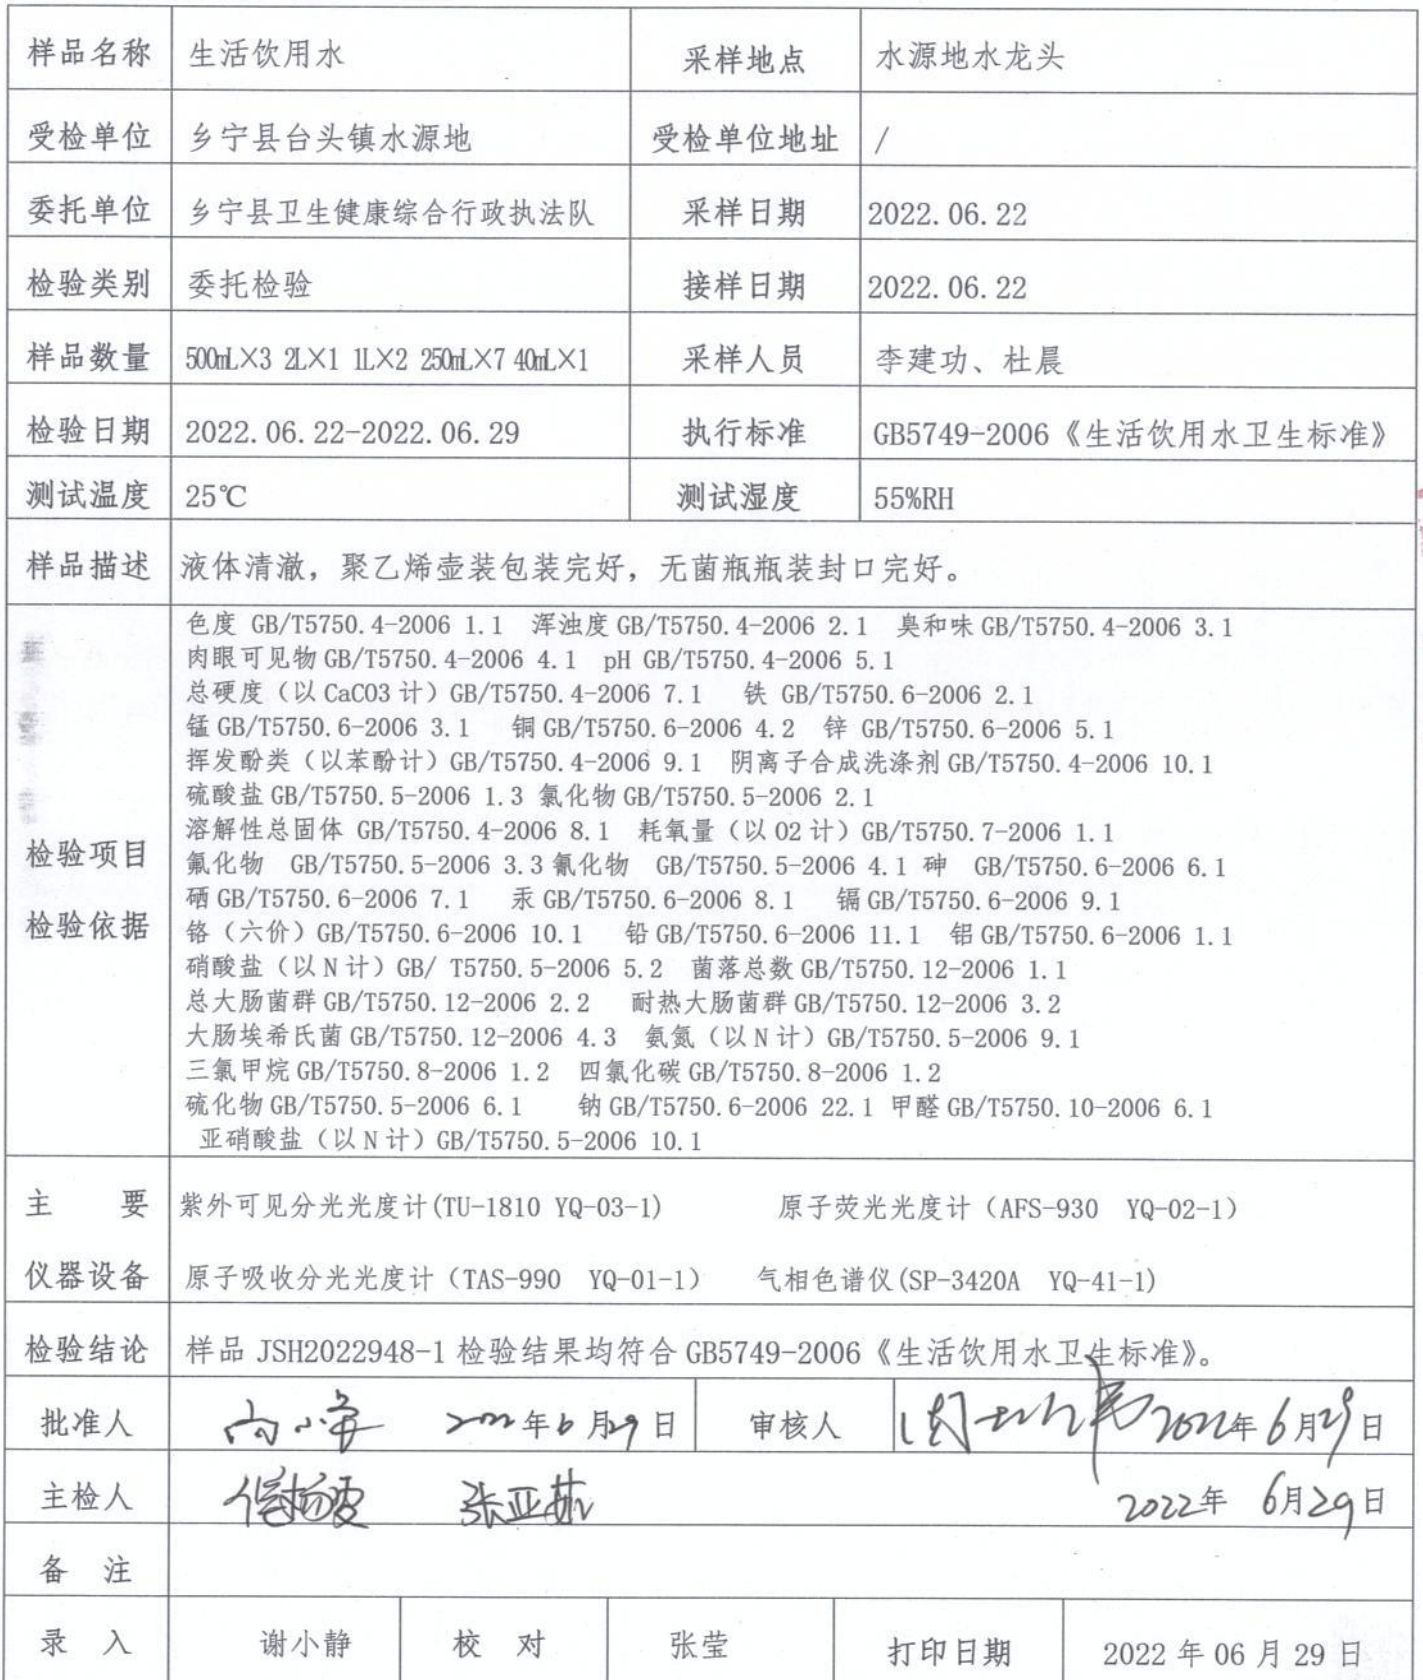 样品名称 生活饮用水 采样地点 水源地水龙头
受检单位 乡宁县台头镇水源地 受检单位地址 /
委托单位 乡宁县卫生健康综合行政执法队 采样日期 2022.06.22
检验类别 委托检验 接样日期 2022.06.22
样品数量 500mL×3 2L×1 1L×2 250mL×7 40mL×1 采样人员 李建功、杜晨
检验日期 2022.06.22-2022.06.29 执行标准 GB5749-2006《生活饮用水卫生标准》
测试温度 25℃ 测试湿度 55%RH
样品描述 液体清澈，聚乙烯壶装包装完好，无菌瓶瓶装封口完好。
检验项目
检验依据
色度 GB/T5750.4-2006 1.1 浑浊度 GB/T5750.4-2006 2.1 臭和味 GB/T5750.4-2006 3.1
肉眼可见物 GB/T5750.4-2006 4.1 pH GB/T5750.4-2006 5.1
总硬度（以 CaCO3 计）GB/T5750.4-2006 7.1 铁 GB/T5750.6-2006 2.1
锰 GB/T5750.6-2006 3.1 铜 GB/T5750.6-2006 4.2 锌 GB/T5750.6-2006 5.1
挥发酚类（以苯酚计）GB/T5750.4-2006 9.1 阴离子合成洗涤剂 GB/T5750.4-2006 10.1
硫酸盐 GB/T5750.5-2006 1.3 氯化物 GB/T5750.5-2006 2.1
溶解性总固体 GB/T5750.4-2006 8.1 耗氧量（以 O2 计）GB/T5750.7-2006 1.1
氟化物 GB/T5750.5-2006 3.3 氰化物 GB/T5750.5-2006 4.1 砷 GB/T5750.6-2006 6.1
硒 GB/T5750.6-2006 7.1 汞 GB/T5750.6-2006 8.1 镉 GB/T5750.6-2006 9.1
铬（六价）GB/T5750.6-2006 10.1 铅 GB/T5750.6-2006 11.1 铝 GB/T5750.6-2006 1.1
硝酸盐（以 N 计）GB/ T5750.5-2006 5.2 菌落总数 GB/T5750.12-2006 1.1
总大肠菌群 GB/T5750.12-2006 2.2 耐热大肠菌群 GB/T5750.12-2006 3.2
大肠埃希氏菌 GB/T5750.12-2006 4.3 氨氮（以 N 计）GB/T5750.5-2006 9.1
三氯甲烷 GB/T5750.8-2006 1.2 四氯化碳 GB/T5750.8-2006 1.2
硫化物 GB/T5750.5-2006 6.1 钠 GB/T5750.6-2006 22.1 甲醛 GB/T5750.10-2006 6.1
亚硝酸盐（以 N 计）GB/T5750.5-2006 10.1
主 要 紫外可见分光光度计(TU-1810 YQ-03-1) 原子荧光光度计（AFS-930 YQ-02-1）
仪器设备 原子吸收分光光度计（TAS-990 YQ-01-1） 气相色谱仪(SP-3420A YQ-41-1)
检验结论 样品 JSH2022948-1 检验结果均符合 GB5749-2006《生活饮用水卫生标准》。
批准人 2022年6月29日 审核人 2022年6月29日
主检人 张亚茹 2022年 6月29日
备 注
录 入 谢小静 校 对 张莹 打印日期 2022 年 06 月 29 日